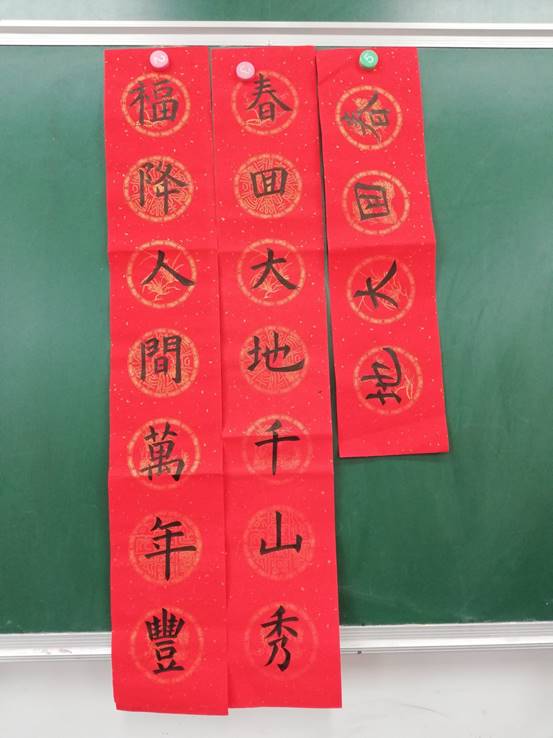 春回大地
春回大地千山秀
福降人間萬年豐